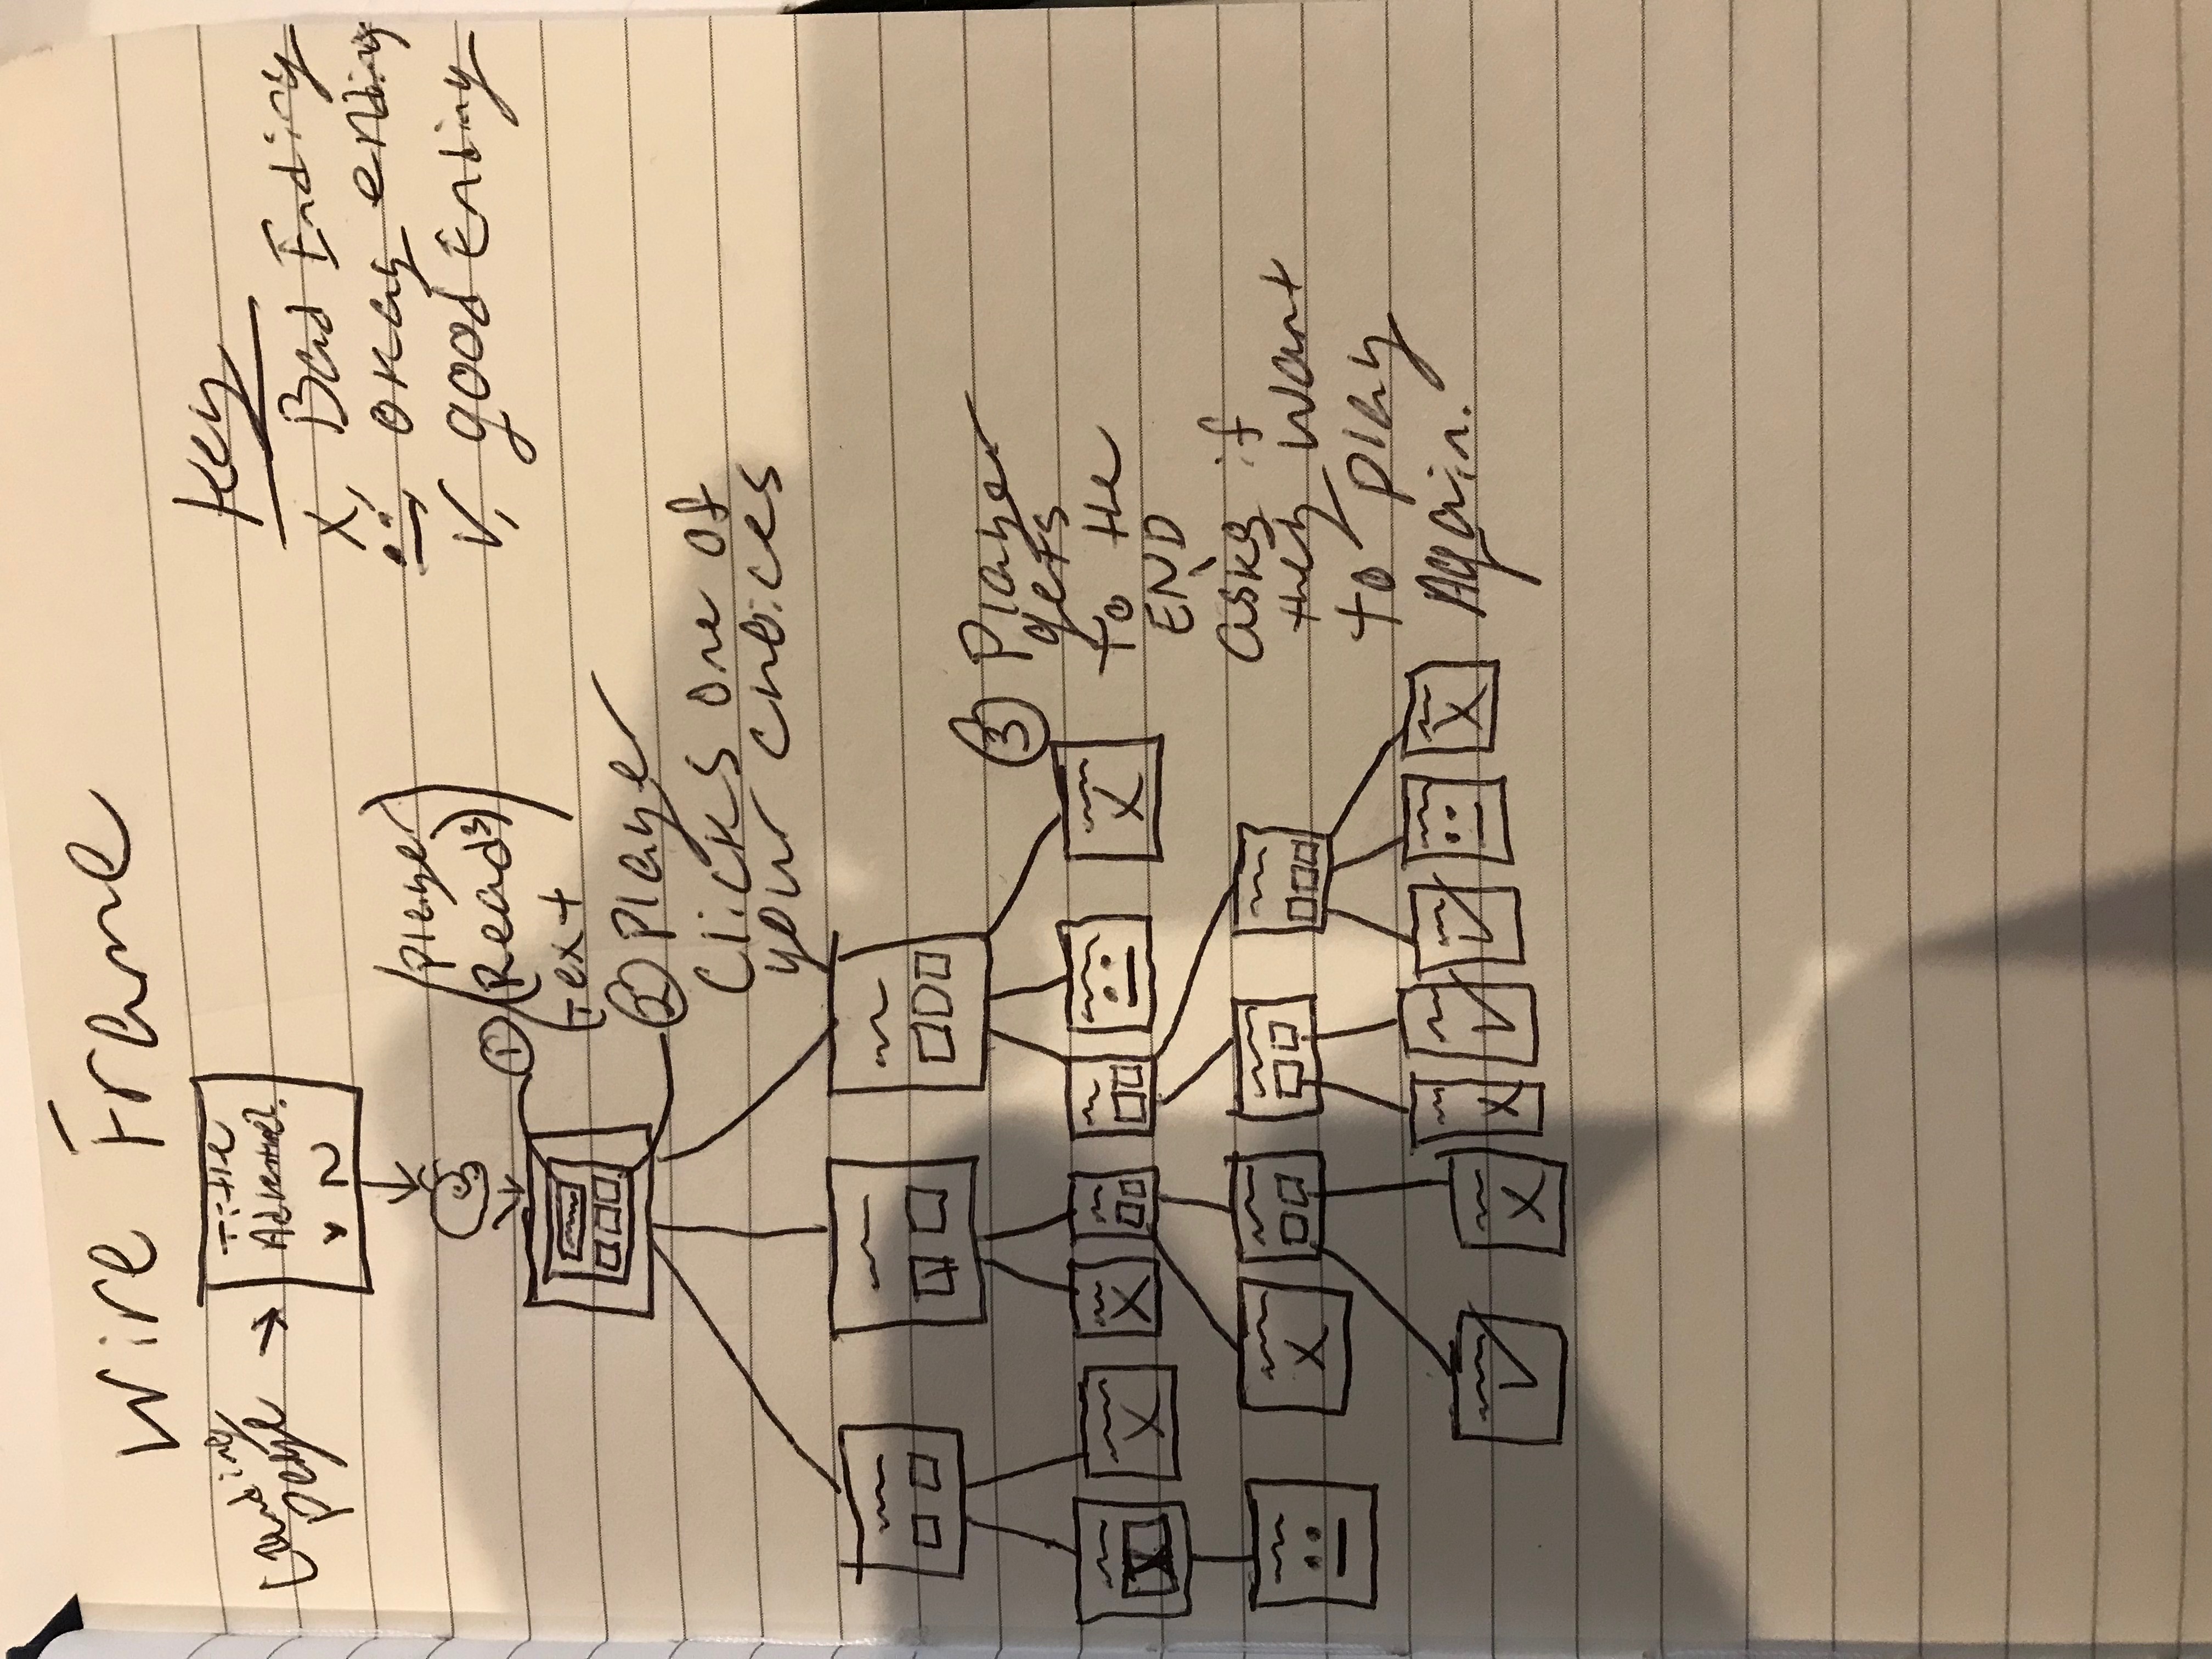 Wire Frame
Landing
Page
Title
Adventure?
Y N
Key
X, Bad Ending
okay ending
✓, good Ending
① (Player
(Reads)
Text
② Player
Clicks one of
your choices
X
X
X
X
③ Player
gets
to the
END
asks if
they want
to play
Again.
X
✓
X
X
✓
✓
X